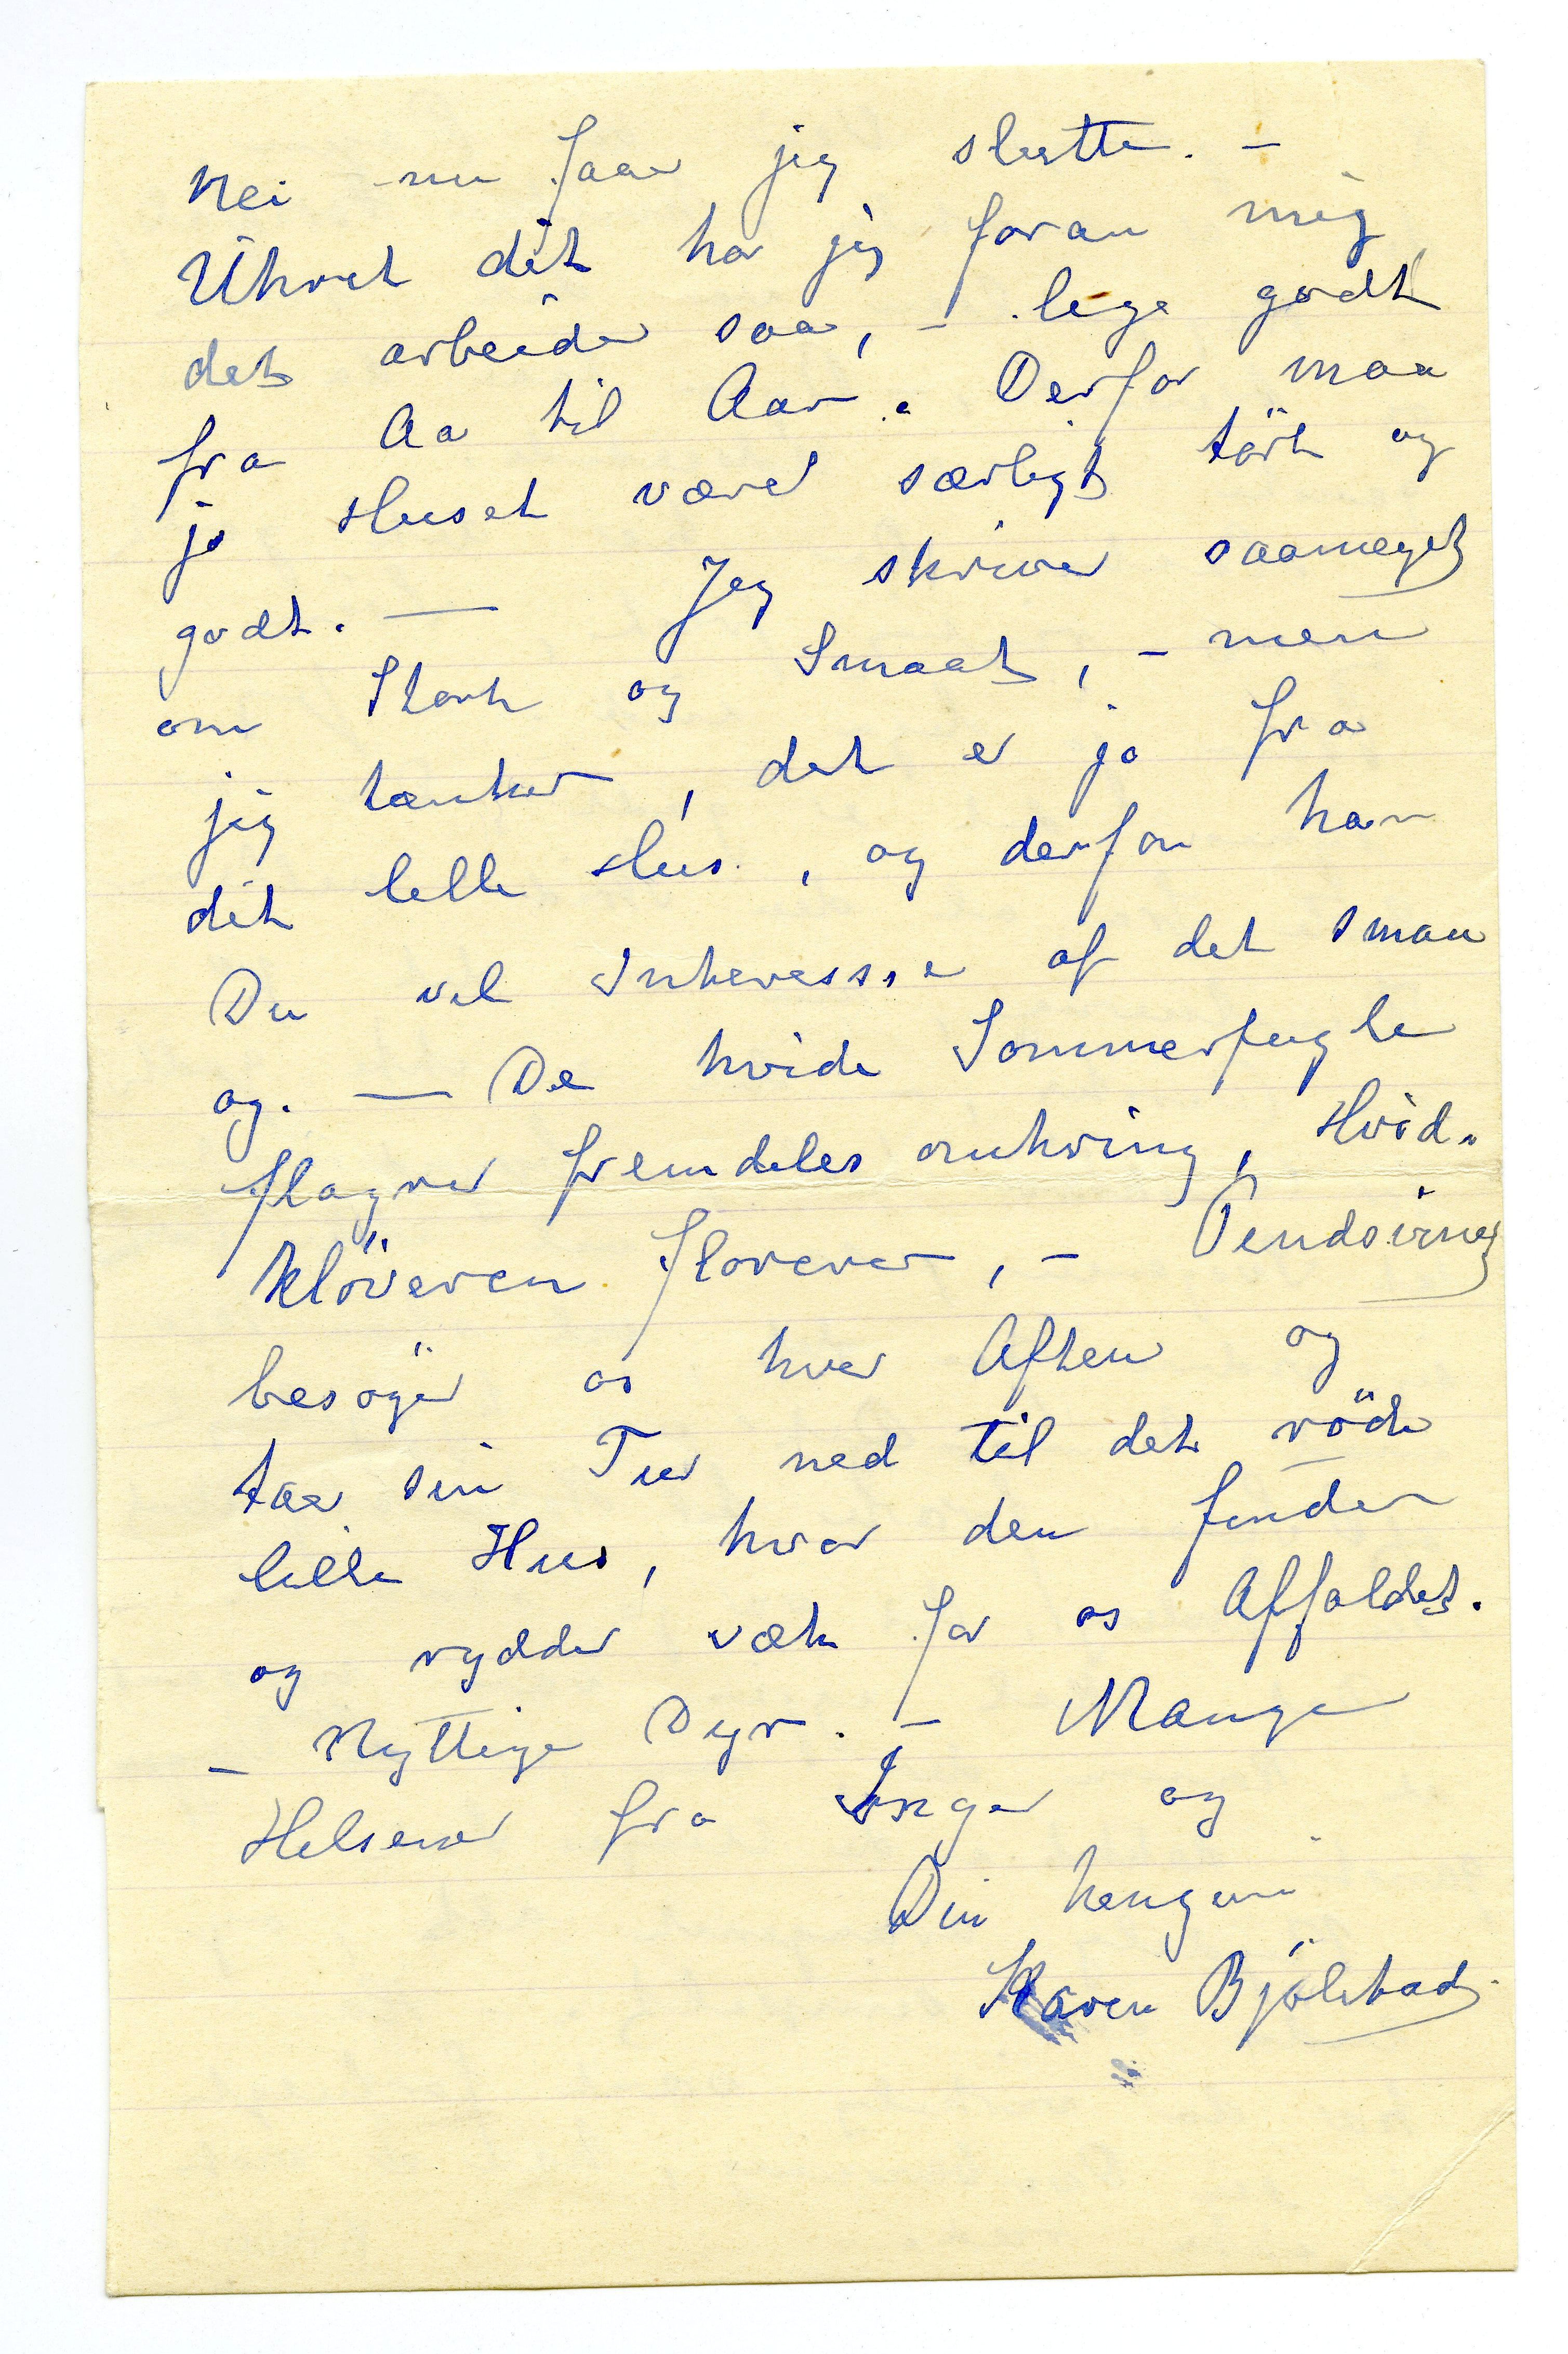 Nei nu faar jeg slutte. –
Uhret dit har jeg foran mig
det arbeider saa, – lige godt
fra Aa til Aar. Derfor maa
jo Huset været særligt tört og
godt. — Jeg skriver saameget
om Stort og Smaat, – men
jeg tænker, det er jo fra
dit lille Hus, og derfor har
Du vel Interesse af det smaa
og. — De hvide Sommerfugle
flagrer fremdeles omkring, Hvid-
klöveren florerer, – Pindsvinet
besöger os hver Aften og
taar sin Tur ned til det röde
lille Hus, hvor den finder
og rydder væk for os Affaldet.
– Nyttige Dyr. – Mange
Helsener fra Inger og
Din hengivne
Karen Bjölstad.